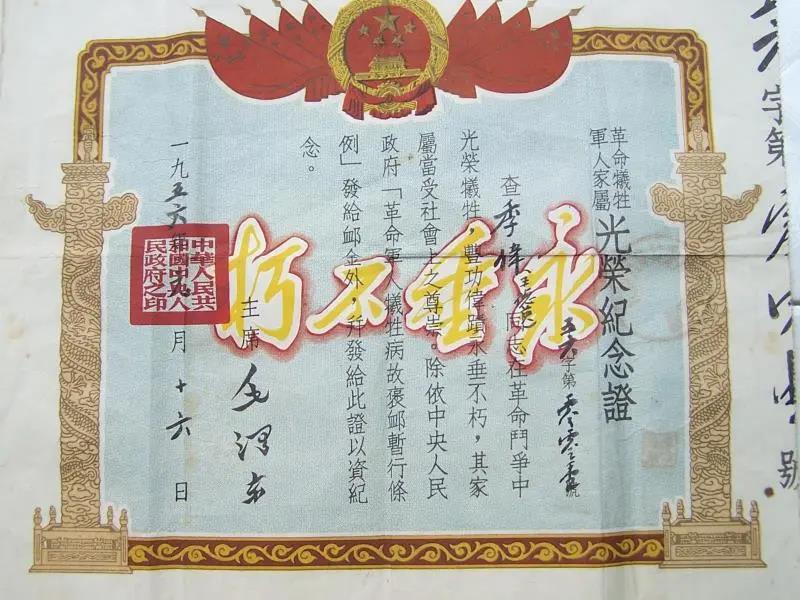 字第
號
革命犧牲
軍人家屬
光榮紀念證
五六字第零零號
查季偉同志在革命鬥爭中
光榮犧牲,豐功偉蹟永垂不朽,其家
屬當受社會上之尊崇。除依中央人民
政府「革命軍人犧牲病故褒卹暫行條
例」發給卹金外,并發給此證以資紀
念。
永垂不朽
主席 毛澤東
一九五六年九月十六日
中華人民共
和國中央人
民政府之印